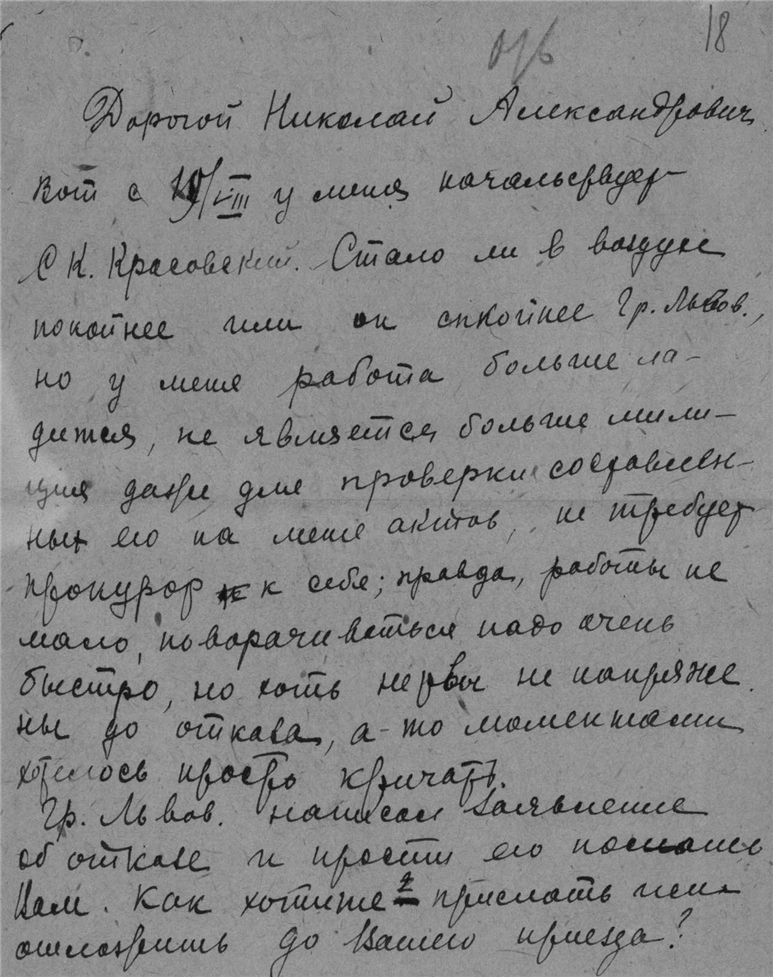 18
Дорогой Николай Александрович
Вот с 19/VIII у меня начальствует
С К. Красовский. Стало ли в воздухе
покойнее или он спкойнее Гр. Львов.,
но у меня работа больше ла-
дится, не является больше мили-
ция даже для проверки составлен-
ных ею на меня актов, не требует
прокурор к себе; правда, работы не
мало, поворачиваться надо очень
быстро, но хоть нервы не напряже
ны до отказа, а-то моментами
хотелось просто кричать.
Гр. Львов. написал заявление
об отказе и просит его послать
Вам. Как хотите прислать или
отложить до Вашего приезда?